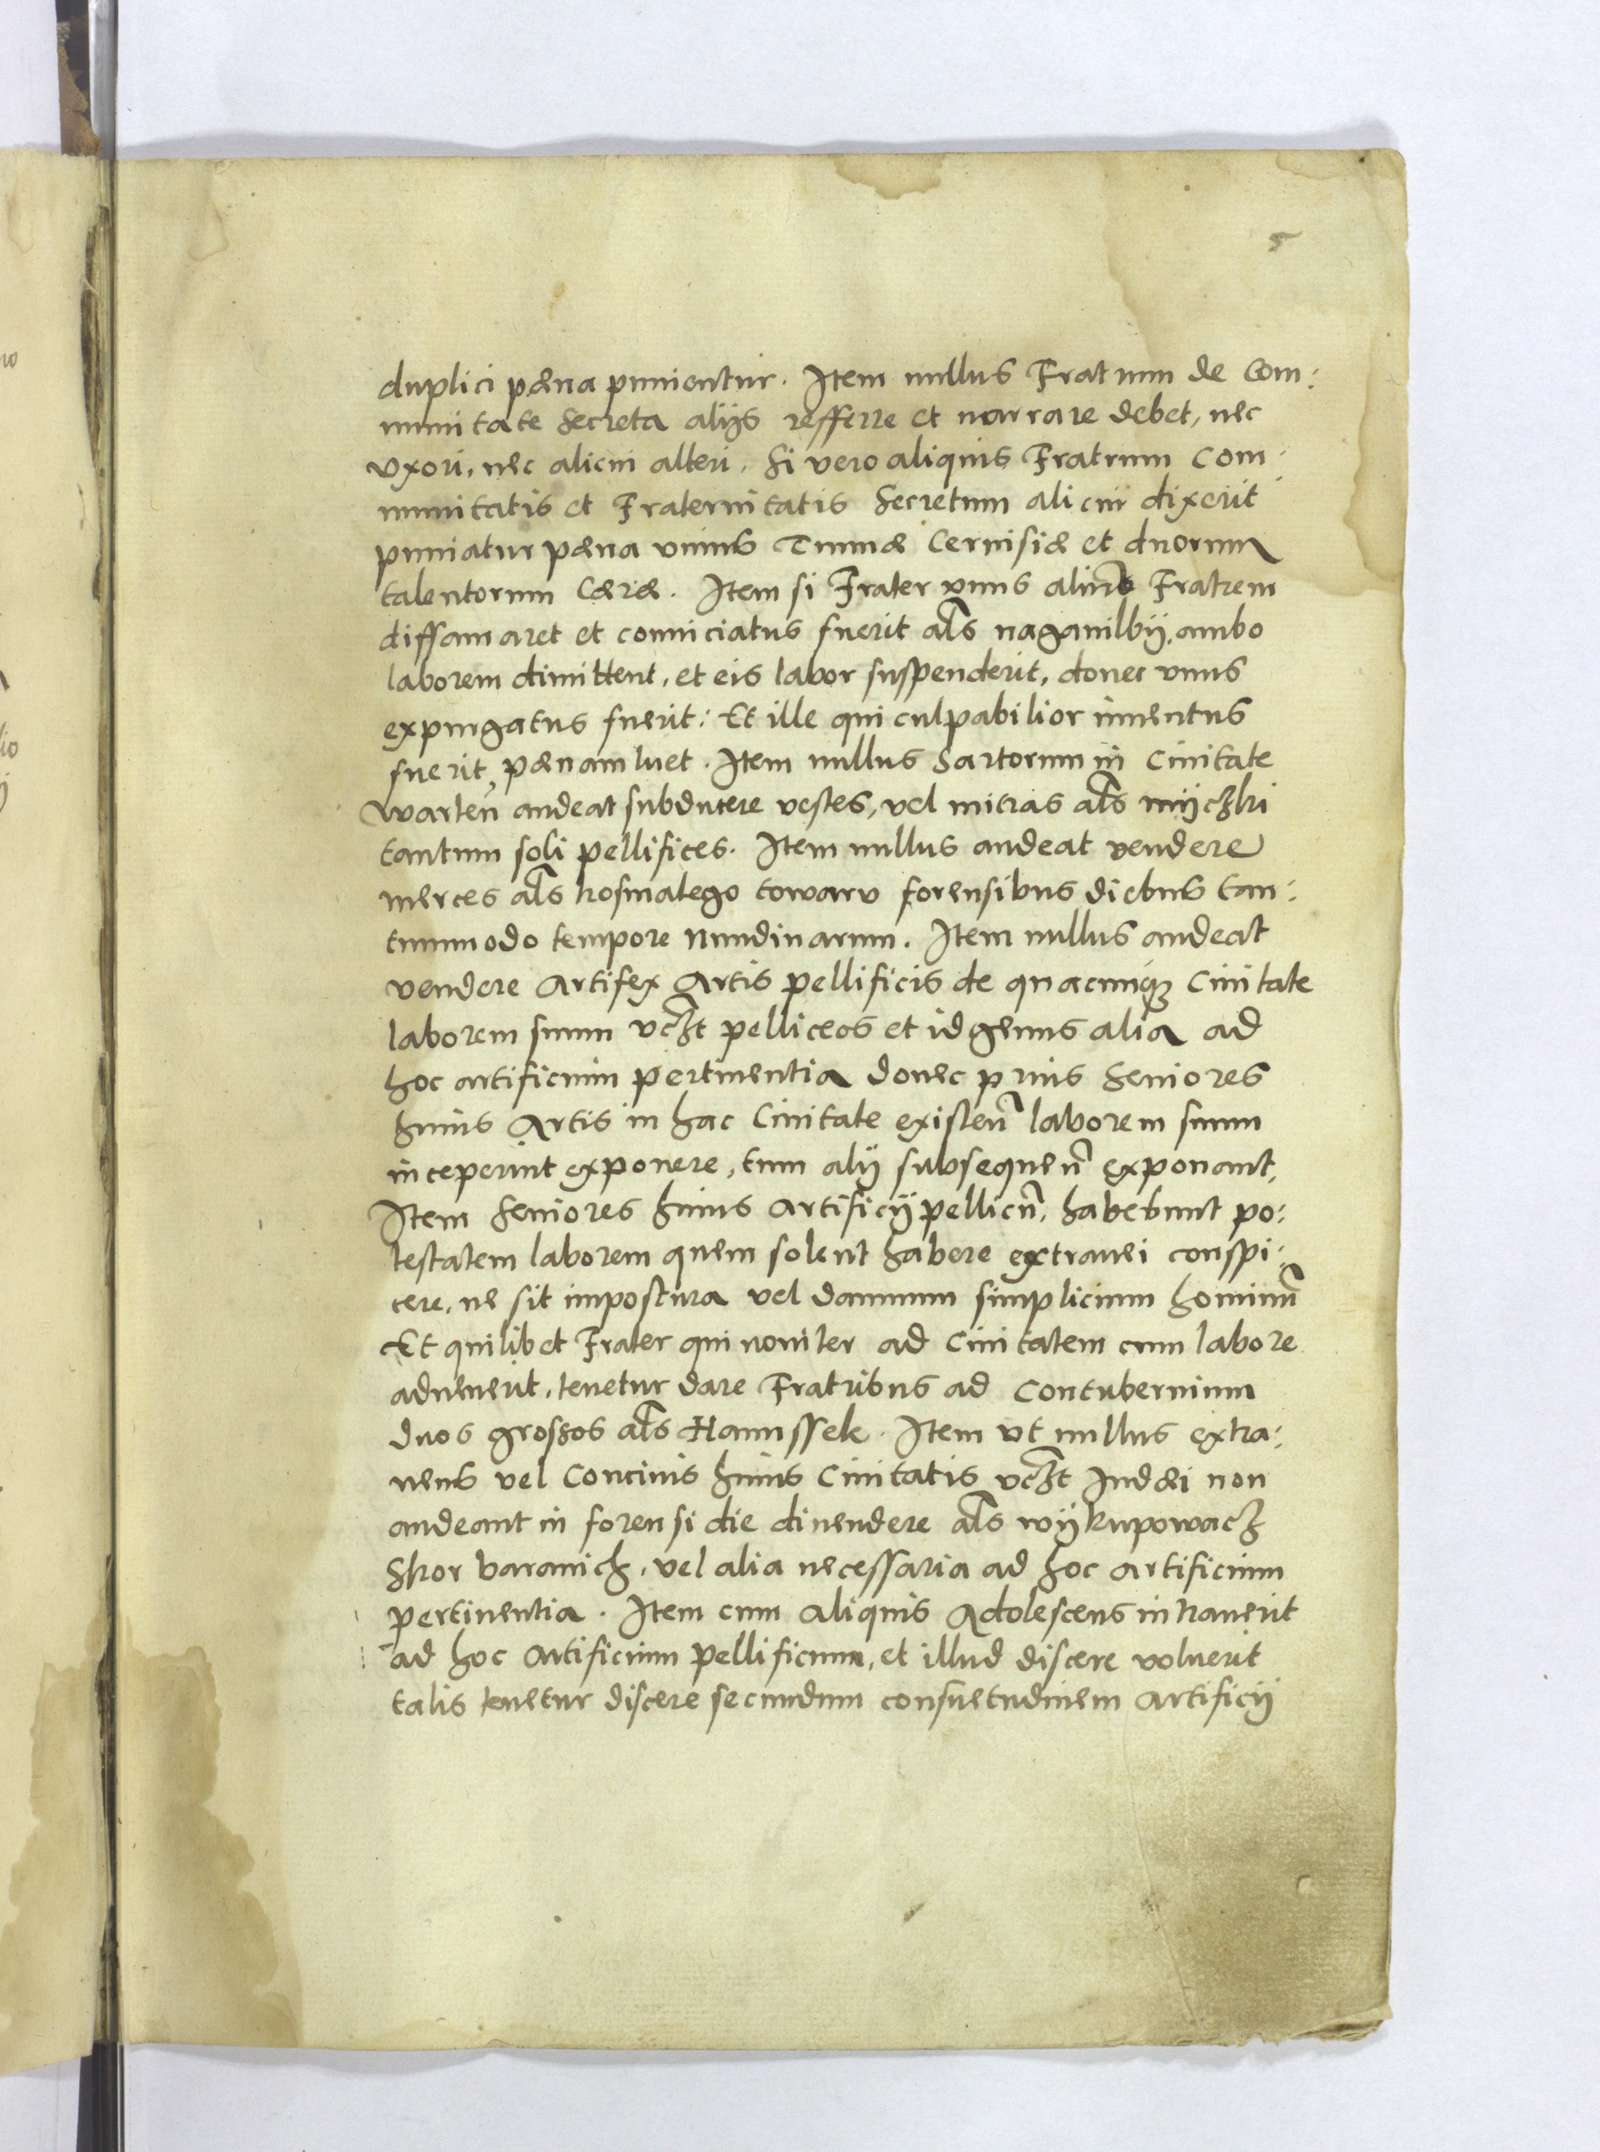 5
duplici pæna punientur. Item nullus Fratrum de Com:
munitate secreta alijs refferre et narrare debet, nec
vxori, nec alicui alteri. Si vero aliquis Fratrum Com:
munitatis et Fraternitatis Secretum alicui dixerit
puniatur pæna vnius Tunnæ Ceruisiæ et duorum
talentorum Cæræ. Item si Frater vnus alium Fratrem
diffamaret et conuiciatus fuerit als naganilby, ambo
laborem dimittent, et eis labor suspenderit, donec vnus
expurgatus fuerit: Et ille qui culpabilior inuentus
fuerit, pænam luet. Item nullus Sartorum in Ciuitate
Warteñ audeat subducere vestes, vel mitras als mÿczki
tantum soli pellifices. Item nullus audeat vendere
merces als kosmatego towaru forensibus diebus tan:
tummodo tempore Nundinarum. Item nullus audeat
vendere Artifex Artis pellificis de quacunqz Ciuitate
laborem suum vczt pelliceos et id genus alia ad
hoc artificium pertinentia donec prius Seniores
huius Artis in hac Ciuitate existeñ laborem suum
inceperint exponere, tum alij subsequeñ exponant,
Item Seniores huius Artificij pellicũ, habebunt po:
testatem laborem quem solent habere extranei conspi:
cere, ne sit impostura vel damnum simplicium hominũ
Et quilibet Frater qui nouiter ad Ciuitatem cum labore
aduenerit, tenetur dare Fratribus ad Contubernium
duos grossos als Hanussek. Item vt nullus extra:
neus vel Conciuis huius Ciuitatis vczt Iudæi non
audeant in forensi die diuendere als wÿkupowacz
Skor baranich, vel alia necessaria ad hoc artificium
pertinentia. Item cum aliquis Adolescens intrauerit
ad hoc Artificium pellificum, et illud discere voluerit
talis tenetur discere secundum consuetudinem artificij